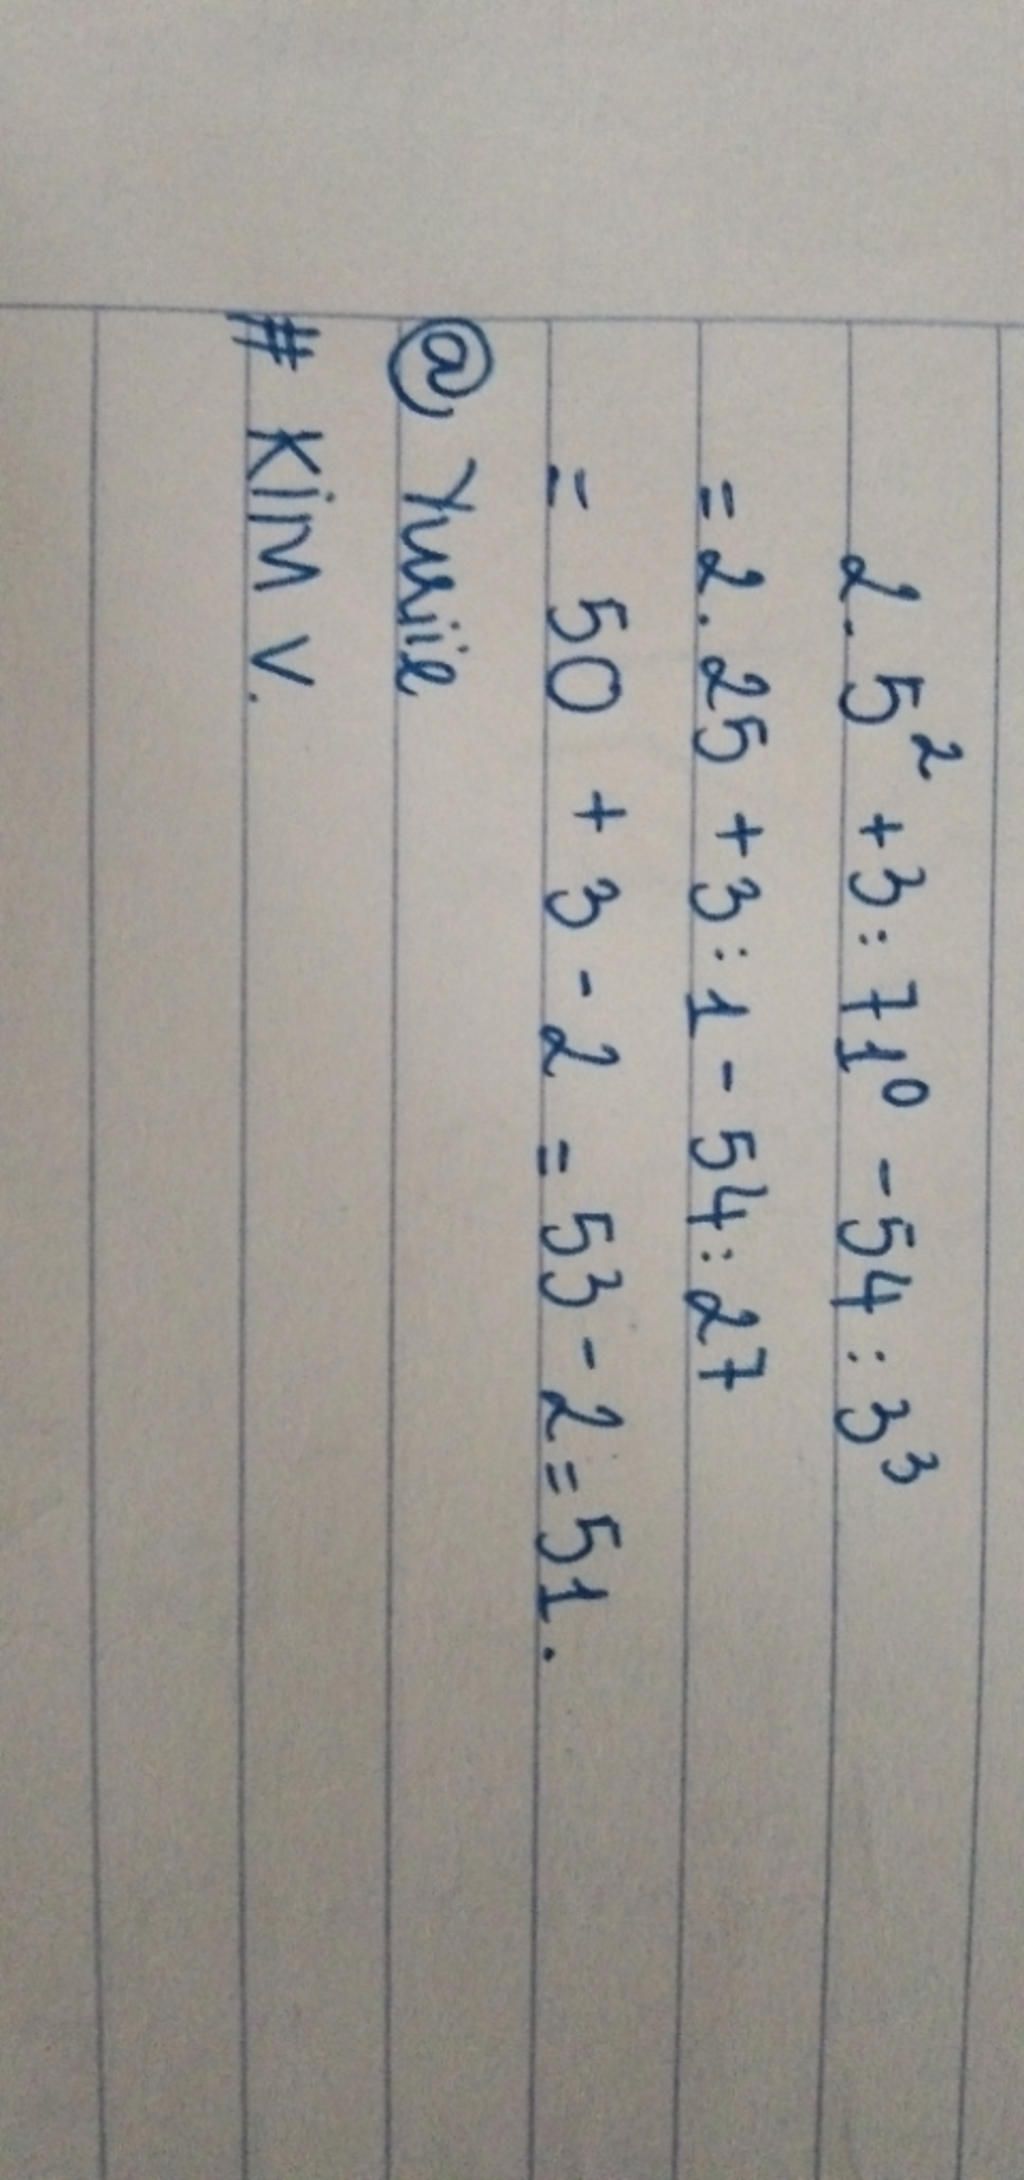 2. 5² + 3 : 71⁰ - 54 : 3³
= 2. 25 + 3 : 1 - 54 : 27
= 50 + 3 - 2 = 53 - 2 = 51.
@ Yuriie
# KIM V.